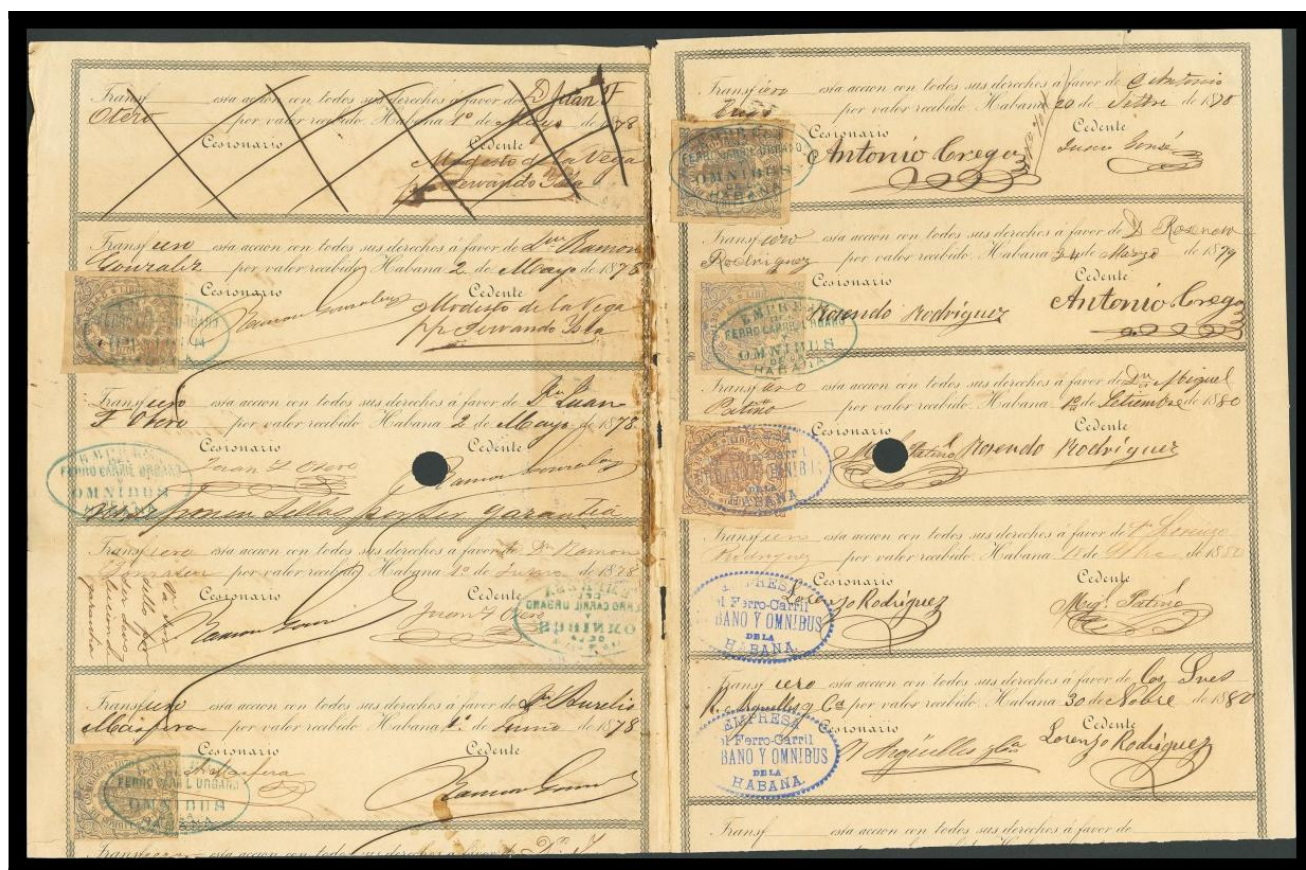 Transf esta acción con todos sus derechos á favor de D Juan F
Otero por valor recibido. Habana 1º de Mayo de 1878
Cesionario Cedente
Modesto de la Vega
Servando Isla
Transfiero esta accion con todos sus derechos á favor de Ramon
Gonzalez por valor recibido. Habana 2 de Mayo de 1878
Cesionario Cedente
Ramon Gonzalez Modesto de la Vega
pp Servando Isla
FERRO CARRIL URBANO
OMNIBUS
Transfiero esta accion con todos sus derechos á favor de Dn Juan
F Otero por valor recibido. Habana 2 de Mayo de 1878.
Cesionario Cedente
Juan F Otero Ramon Gonzalez
EMPRESA
DEL
FERRO CARRIL URBANO
Y
OMNIBUS
HABANA
no se ponen sellos por ser garantia
Transfiero esta accion con todos sus derechos á favor de Dn Ramon
Gonzalez por valor recibido. Habana 1º de Junio de 1878
Cesionario Cedente
Ramon Juan F Otero
sello por
garantia
EMPRESA
DEL
FERRO CARRIL URBANO
Y
OMNIBUS
Transfiero esta accion con todos sus derechos á favor de Dn Aurelio
Maispera por valor recibido. Habana 1º de Junio de 1878
Cesionario Cedente
FERRO CARRIL URBANO
OMNIBUS
HABANA
Transfiero esta accion con todos sus derechos á favor de Dn J
Transfiero esta accion con todos sus derechos á favor de D Antonio
por valor recibido. Habana 20 de Setbre de 1878
Cesionario Cedente
Antonio Crego
EMPRESA
FERRO CARRIL URBANO
Y
OMNIBUS
HABANA
Transfiero esta accion con todos sus derechos á favor de D Rosendo
Rodriguez por valor recibido. Habana 24 de Marzo de 1879
Cesionario Cedente
Rosendo Rodriguez Antonio Crego
EMPRESA
DEL
FERRO CARRIL URBANO
Y
OMNIBUS
DE LA
HABANA
Transfiero esta accion con todos sus derechos á favor de Dn Miguel
Patiño por valor recibido. Habana 1º de Setiembre de 1880
Cesionario Cedente
Patiño Rosendo Rodríguez
Ferro-Carril
URBANO Y OMNIBUS
DE LA
HABANA
Transfiero esta accion con todos sus derechos á favor de Dn Lorenzo
Rodriguez por valor recibido. Habana 11 de de 1880
Cesionario Cedente
Lorenzo Rodríguez Migl Patiño
EMPRESA
el Ferro-Carril
BANO Y OMNIBUS
DE LA
HABANA
Transfiero esta accion con todos sus derechos á favor de los Sres
R. Arguelles y Ca por valor recibido. Habana 30 de Nobre de 1880
Cesionario Cedente
R Argüelles y Ca Lorenzo Rodríguez
EMPRESA
el Ferro-Carril
BANO Y OMNIBUS
DE LA
HABANA.
Transf esta accion con todos sus derechos á favor de
por valor recibido. Habana de de 18